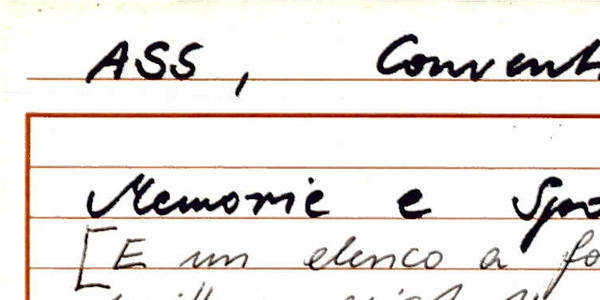 ASS, Convent
Memorie e Spo
[E un elenco a fo